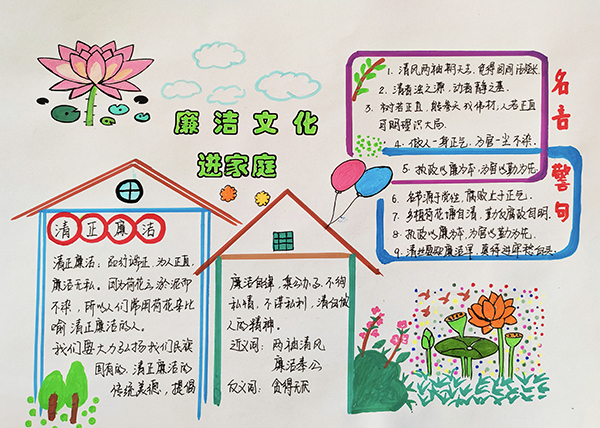 廉洁文化
进家庭
清正廉洁
清正廉洁,品行端正,为人正直,
廉洁无私。因为荷花出淤泥而
不染,所以人们常用荷花来比
喻清正廉洁的人。
我们要大力弘扬我们民族
固有的清正廉洁的
传统美德,提倡
廉洁自律,秉公办事,不徇
私情,不谋私利,清白做
人的精神。
近义词:两袖清风
廉洁奉公
反义词:贪得无厌
名言
警句
1、清风两袖朝天去,免得闾阎话短长。
2、清者浊之源,动者静之基。
3、树若正直,能参天 成伟材,人若正直
可明理识大局。
4、做人一身正气,为官一尘不染。
5、执政以廉为本,为官以勤为先。
6、名节源于党性,腐败止于正气。
7、乡植荷花源自清,勤反腐政自明。
8、执政以廉为本,为官以勤为先。
9、清